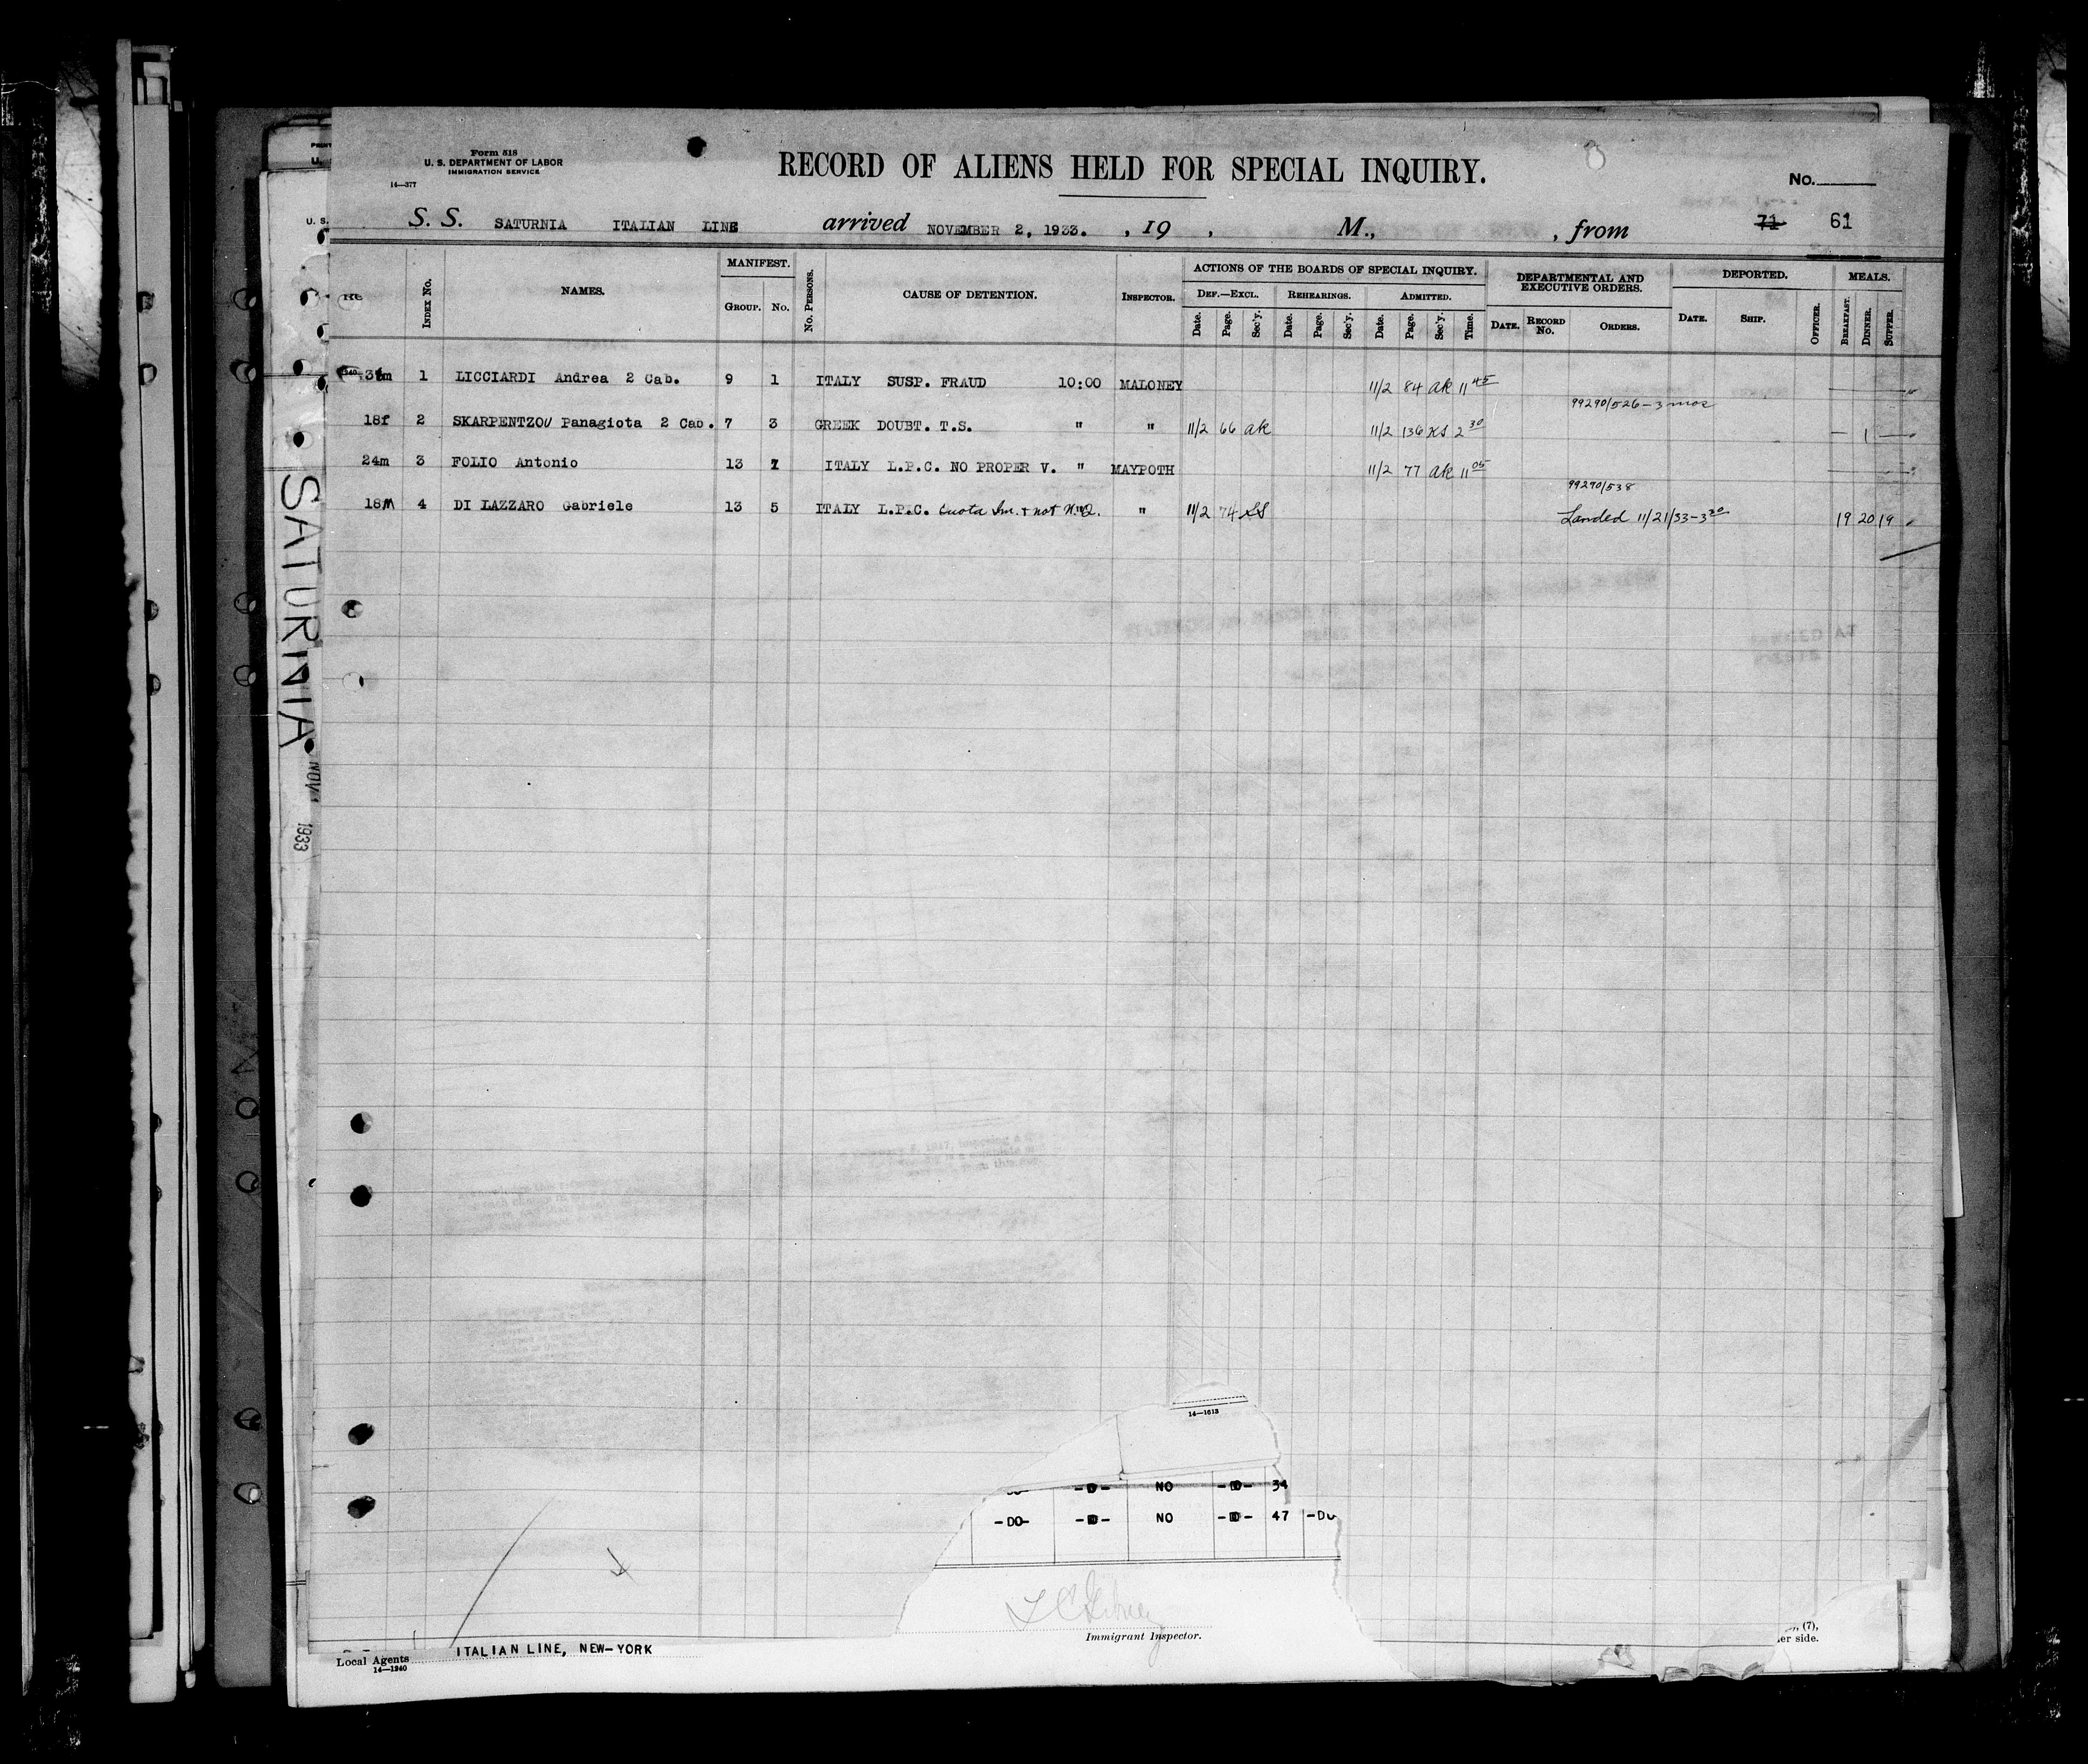 Form 518
U. S. DEPARTMENT OF LABOR
IMMIGRATION SERVICE
14—377
RECORD OF ALIENS HELD FOR SPECIAL INQUIRY.
No.
S. S. SATURNIA ITALIAN LINE arrived NOVEMBER 2, 1933. , 19 , M., , from 71 61
INDEX No. NAMES. MANIFEST. GROUP. No. No. PERSONS. CAUSE OF DETENTION. INSPECTOR. ACTIONS OF THE BOARDS OF SPECIAL INQUIRY. DEPARTMENTAL AND EXECUTIVE ORDERS. DEPORTED. MEALS.
DEF.—EXCL. REHEARINGS. ADMITTED.
Date. Page. Sec'y. Date. Page. Sec'y. Date. Page. Sec'y. Time. DATE. RECORD No. ORDERS. DATE. SHIP. OFFICER. BREAKFAST. DINNER. SUPPER.
1 LICCIARDI Andrea 2 Cab. 9 1 ITALY SUSP. FRAUD 10:00 MALONEY 11/2 84 AK 11 45
99290/526-3 mos
18f 2 SKARPENTZOU Panagiota 2 Cab. 7 3 GREEK DOUBT. T.S. " " 11/2 66 AK 11/2 136 KS 2 30 — 1 —
24m 3 FOLIO Antonio 13 ITALY L.P.C. NO PROPER V. " MAYPOTH 11/2 77 AK 11 05
99290/538
18M 4 DI LAZZARO Gabriele 13 5 ITALY L.P.C. Quota Im. & not N.Q. " " 11/2 74 SS Landed 11/21/33-3 30 19 20 19
SATURNIA
NOV
1933
14—1613
-D- NO -D- 34
-DO- -D- NO -D- 47 -DO
Immigrant Inspector.
(7),
er side.
Local Agents ITALIAN LINE, NEW-YORK
14—1240